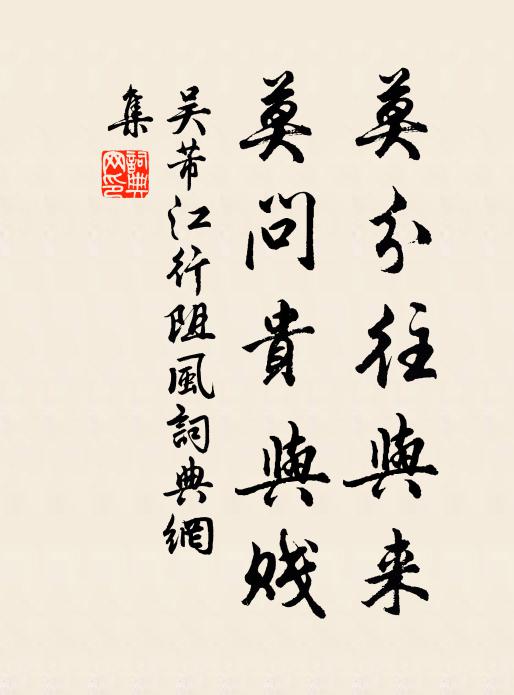 莫分往與来
莫問貴與賤
吴芾江行阻風詞典網
集
詞典網印